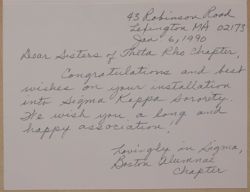 43 Robinson Road
Lexington MA 02173
Jan 6, 1990
Dear Sisters of Theta Rho Chapter,
Congratulations and best
wishes on your installation
into Sigma Kappa Sorority.
We wish you a long and
happy association.
Lovingly in Sigma,
Boston Alumnae
Chapter